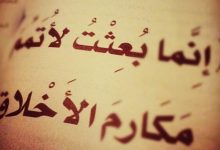 إِنَّمَا بُعِثْتُ لأُتَمِّ
مَكَارِمَ الأَخْلاَقِ